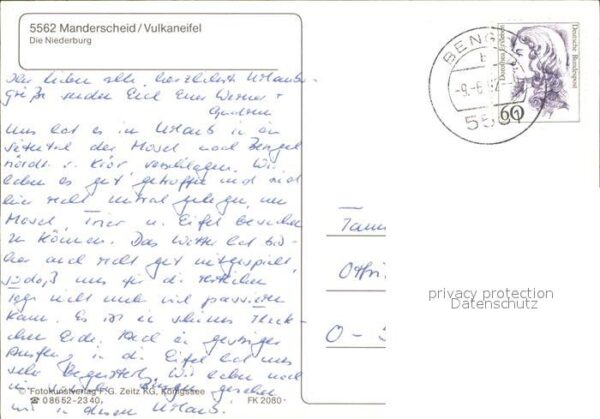 5562 Manderscheid/Vulkaneifel
Die Niederburg
Ihr lieben alle herzlichste Urlaubs-
grüße senden Euch Eure Werner +
Gudrun
Uns hat es im Urlaub in ein
Seitental der Mosel nach Bengel
nördl. v. Kröv verschlagen. Wir
haben es gut getroffen und sind
hier recht zentral gelegen, um
Mosel, Trier u. Eifel besuchen
zu können. Das Wetter hat bis-
her auch recht gut mitgespielt,
sodaß uns für die restlichen
Tage nicht mehr viel passieren
kann. Es ist ein schönes Fleck-
chen Erde. Auch ein gestriger
Ausflug in die Eifel hat uns
sehr begeistert. Wir haben noch
gesehen
wie in diesem Urlaub.
© Fotokunstverlag F.G. Zeitz KG, Königssee
☎ 08652-2340
FK 2080
BENGEL
b
-9.-6.92
5561
Dorothea Erxleben
Deutsche Bundespost
60
Tann
Ottri
O-5
privacy protection
Datenschutz